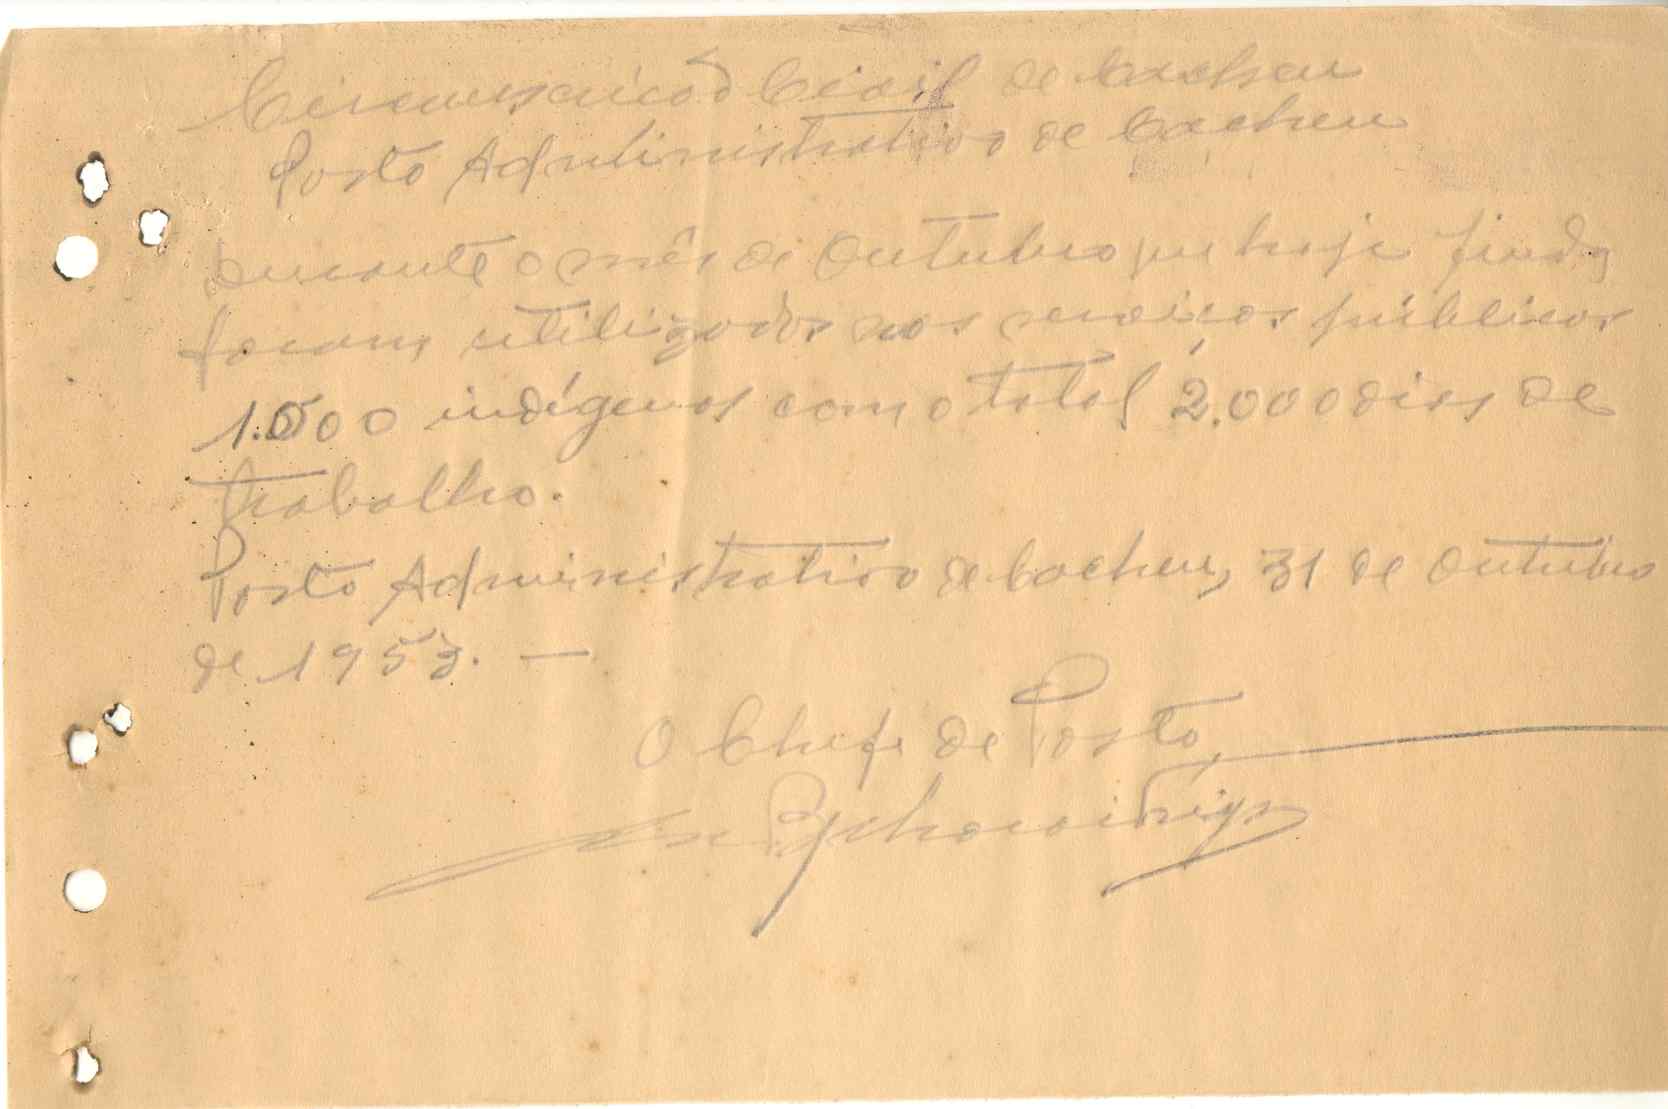 Circunscrição Civil de Cacheu
Posto Administrativo de Cacheu
Durante o mês de Outubro que hoje finda,
foram utilizados nos serviços públicos
1.000 indígenas com o total 2.000 dias de
trabalho.
Posto Administrativo de Cacheu, 31 de Outubro
de 1953. —
O Chefe de Posto,